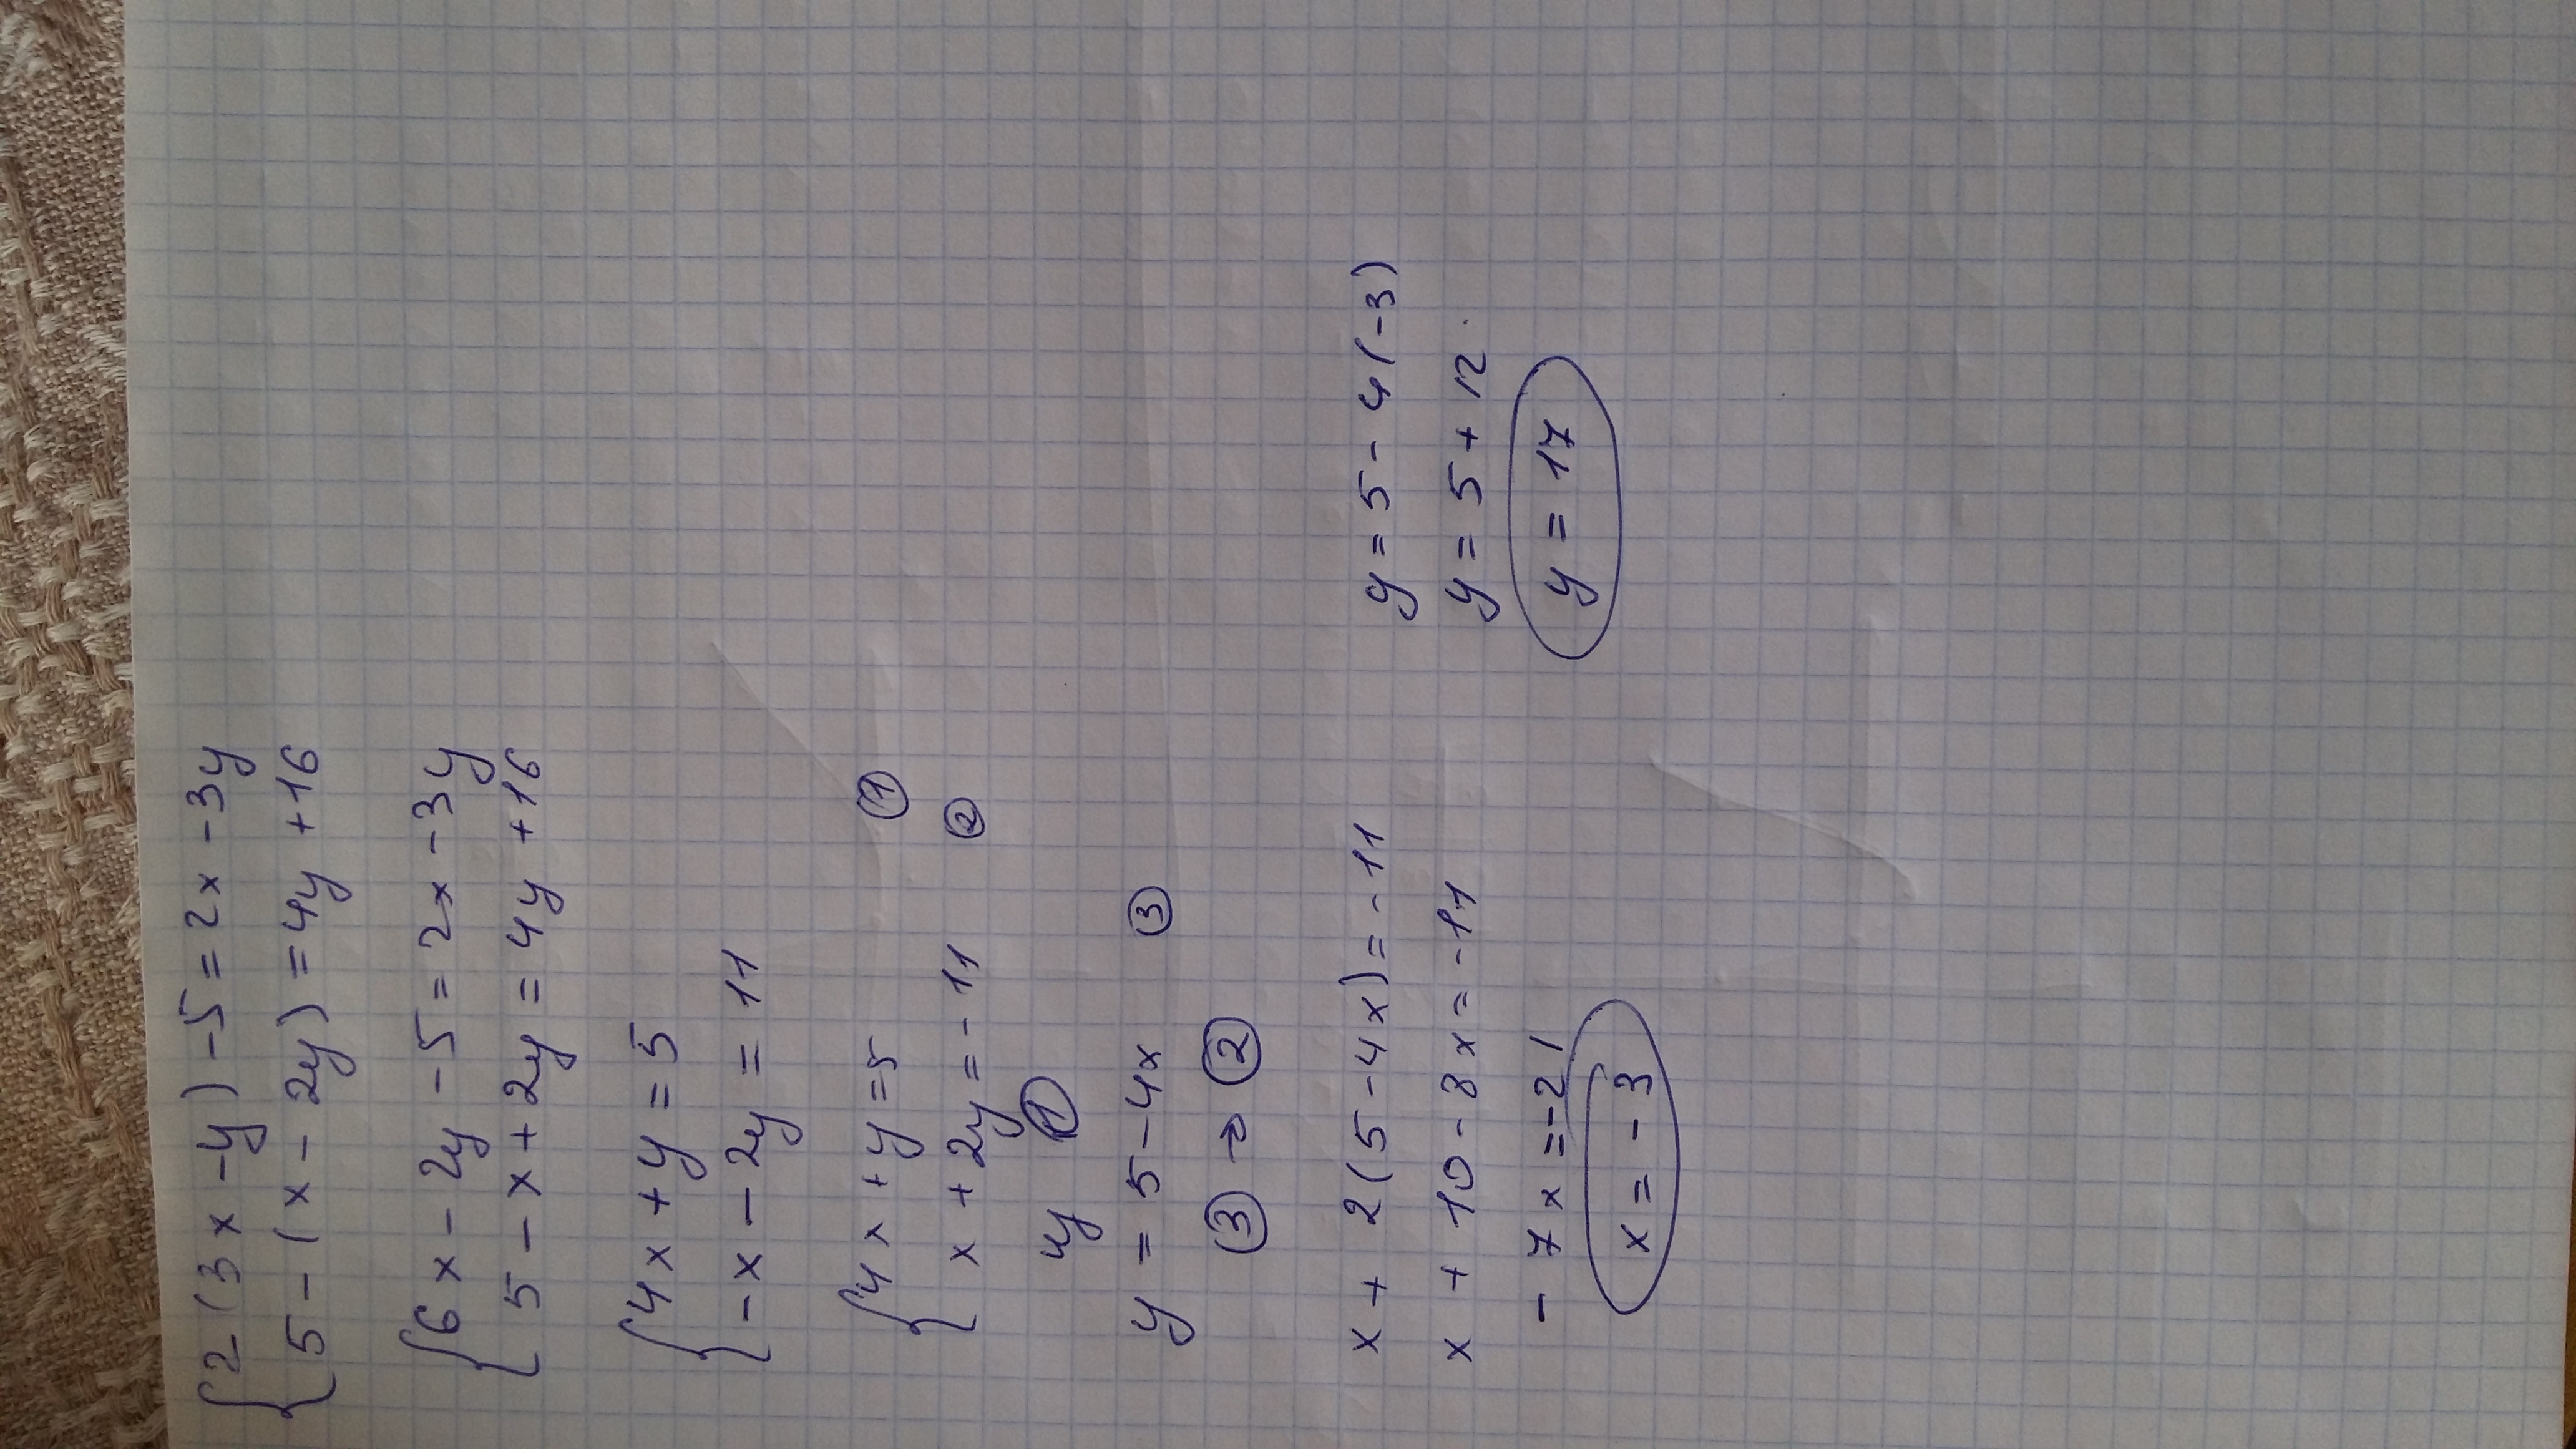 {2(3x-y)-5=2x-3y
5-(x-2y)=4y+16
{6x-2y-5=2x-3y
5-x+2y=4y+16
{4x+y=5
-x-2y=11
{4x+y=5 ①
x+2y=-11 ②
из ①
y=5-4x ③
③→②
x+2(5-4x)=-11
x+10-8x=-11
-7x=-21
x=-3
y=5-4(-3)
y=5+12
y=17